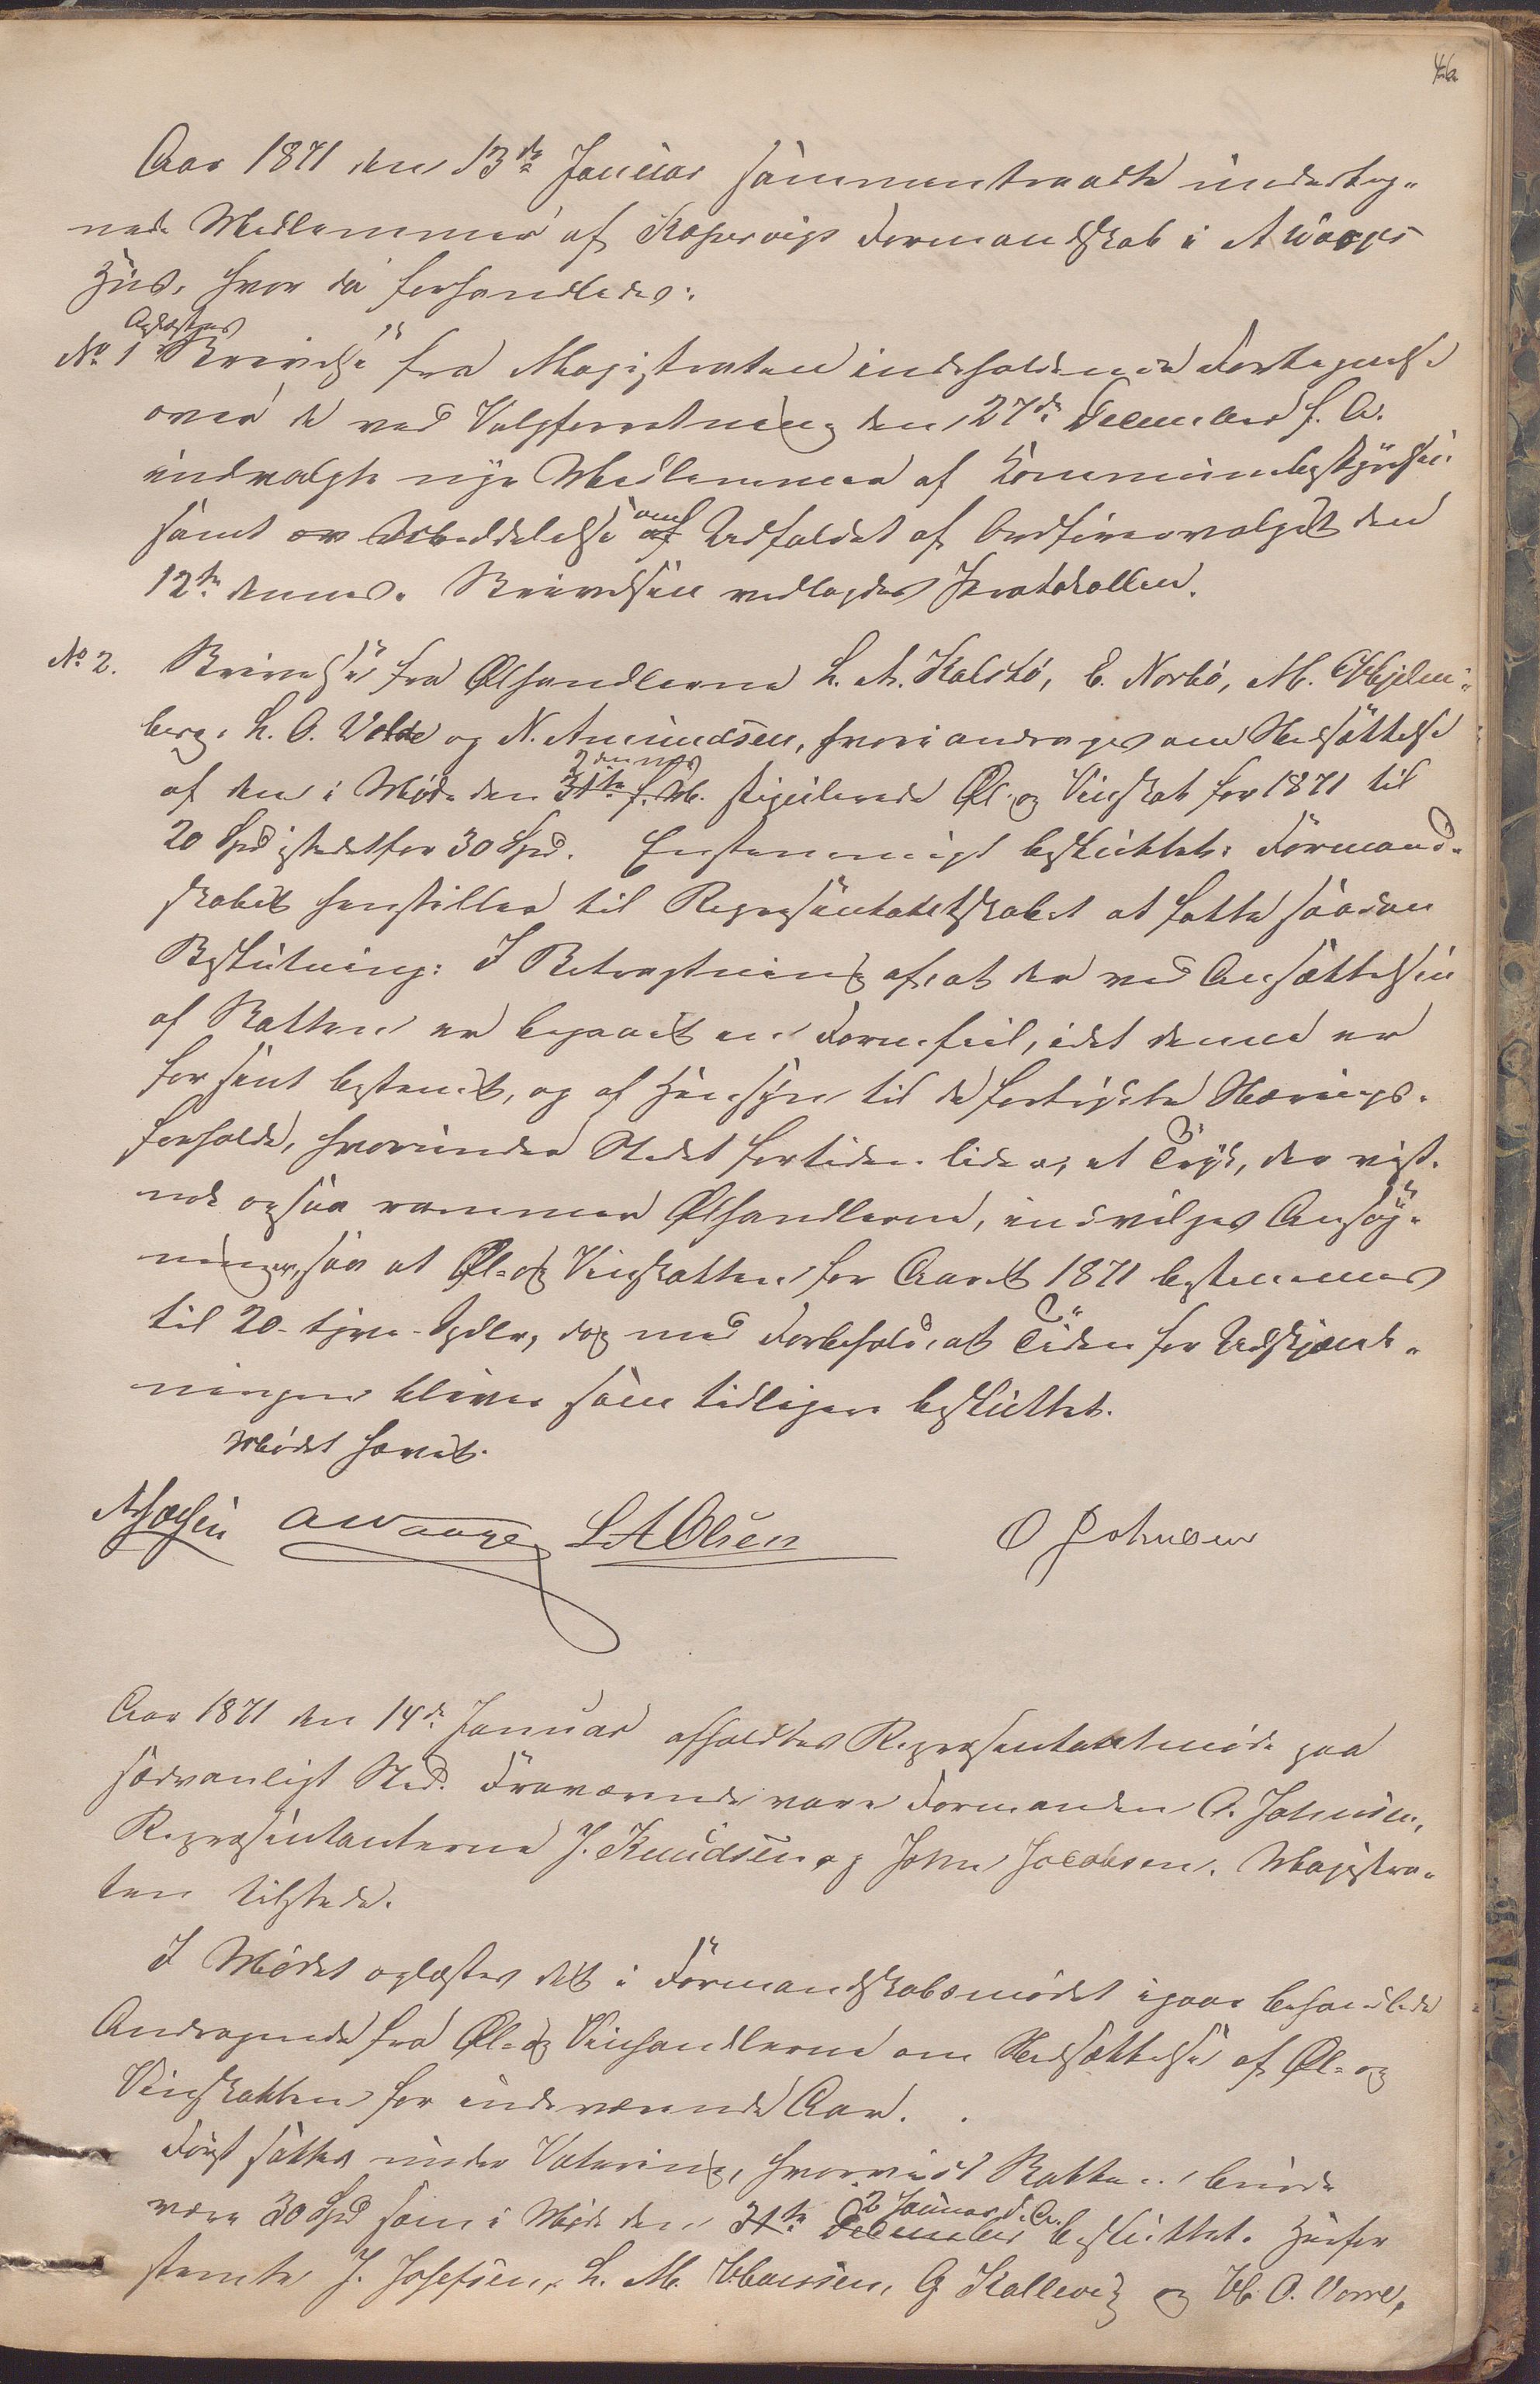 46
Aar 1871 den 13de Januar sammentraadte underteg-
nede Medlemmer af Kopervigs Formandskab i A Waages
Huus, hvor da forhandledes:
Oplæstes
No 1 Skrivelse fra Magistraten indeholdende Fortegnelse
over de ved Valgforretning den 27de December f. A.
indvalgte nye Medlemmer af Kommunebestyrelsen
samt Meddelelse om Udfaldet af Ordførervalget den
12te dennes. Skrivelsen vedlagdes Protokollen.
No 2. Skrivelse fra Ølhandlerne L. A. Kalstø, E. Norbø, M. Gjilm-
berg, L. O. Velde og N. Amundsen, hvori andrages om Nedsættelse
2 dennes
af den i Møde den 31te f. M. stipulerede Øl- og Vinskat for 1871 til
20 Spd istedetfor 30 Spd. Enstemmigt besluttet: Formand-
skabet henstiller til Repræsentantskabet at fatte saadan
Beslutning: I Betragtning af, at der ved Ansættelsen
af Skatten er begaaet en Formfeil, idet denne er
for sent bestemt, og af Hensyn til de fortrykte Nærings-
forholde, hvorunder Stedet fortiden lider, et Tryk, der vist-
nok ogsaa rammer Ølhandlerne, indvilges Ansøg-
ningen, saa at Øl- og Vinskatten for Aaret 1871 bestemmes
til 20 - tyve - Spdlr, dog med Forbehold, at Tiden for Udskjænk-
ningen bliver som tidligere besluttet.
Mødet hævet.
A Waage L A Olsen O Johnsen
Aar 1871 den 14de Januar afholdtes Repræsentantmøde paa
sædvanligt Sted. Fraværende vare Formanden O. Johnsen,
Repræsentanterne J. Knudsen og John Jacobsen. Magistra-
ten tilstede.
I Mødet oplæstes det i Formandskabsmødet igaar behandlede
Andragende fra Øl- og Vinhandlerne om Nedsættelse af Øl- og
Vinskatten for indeværende Aar.
Først sattes under Votering, hvorvidt Skatten burde
2 Januar d. A.
være 30 Spd som i Møde den 31te December besluttet. Herfor
stemte J. Josefsen, L. M. Monsen, G Kallevig og M. O. Vorre,